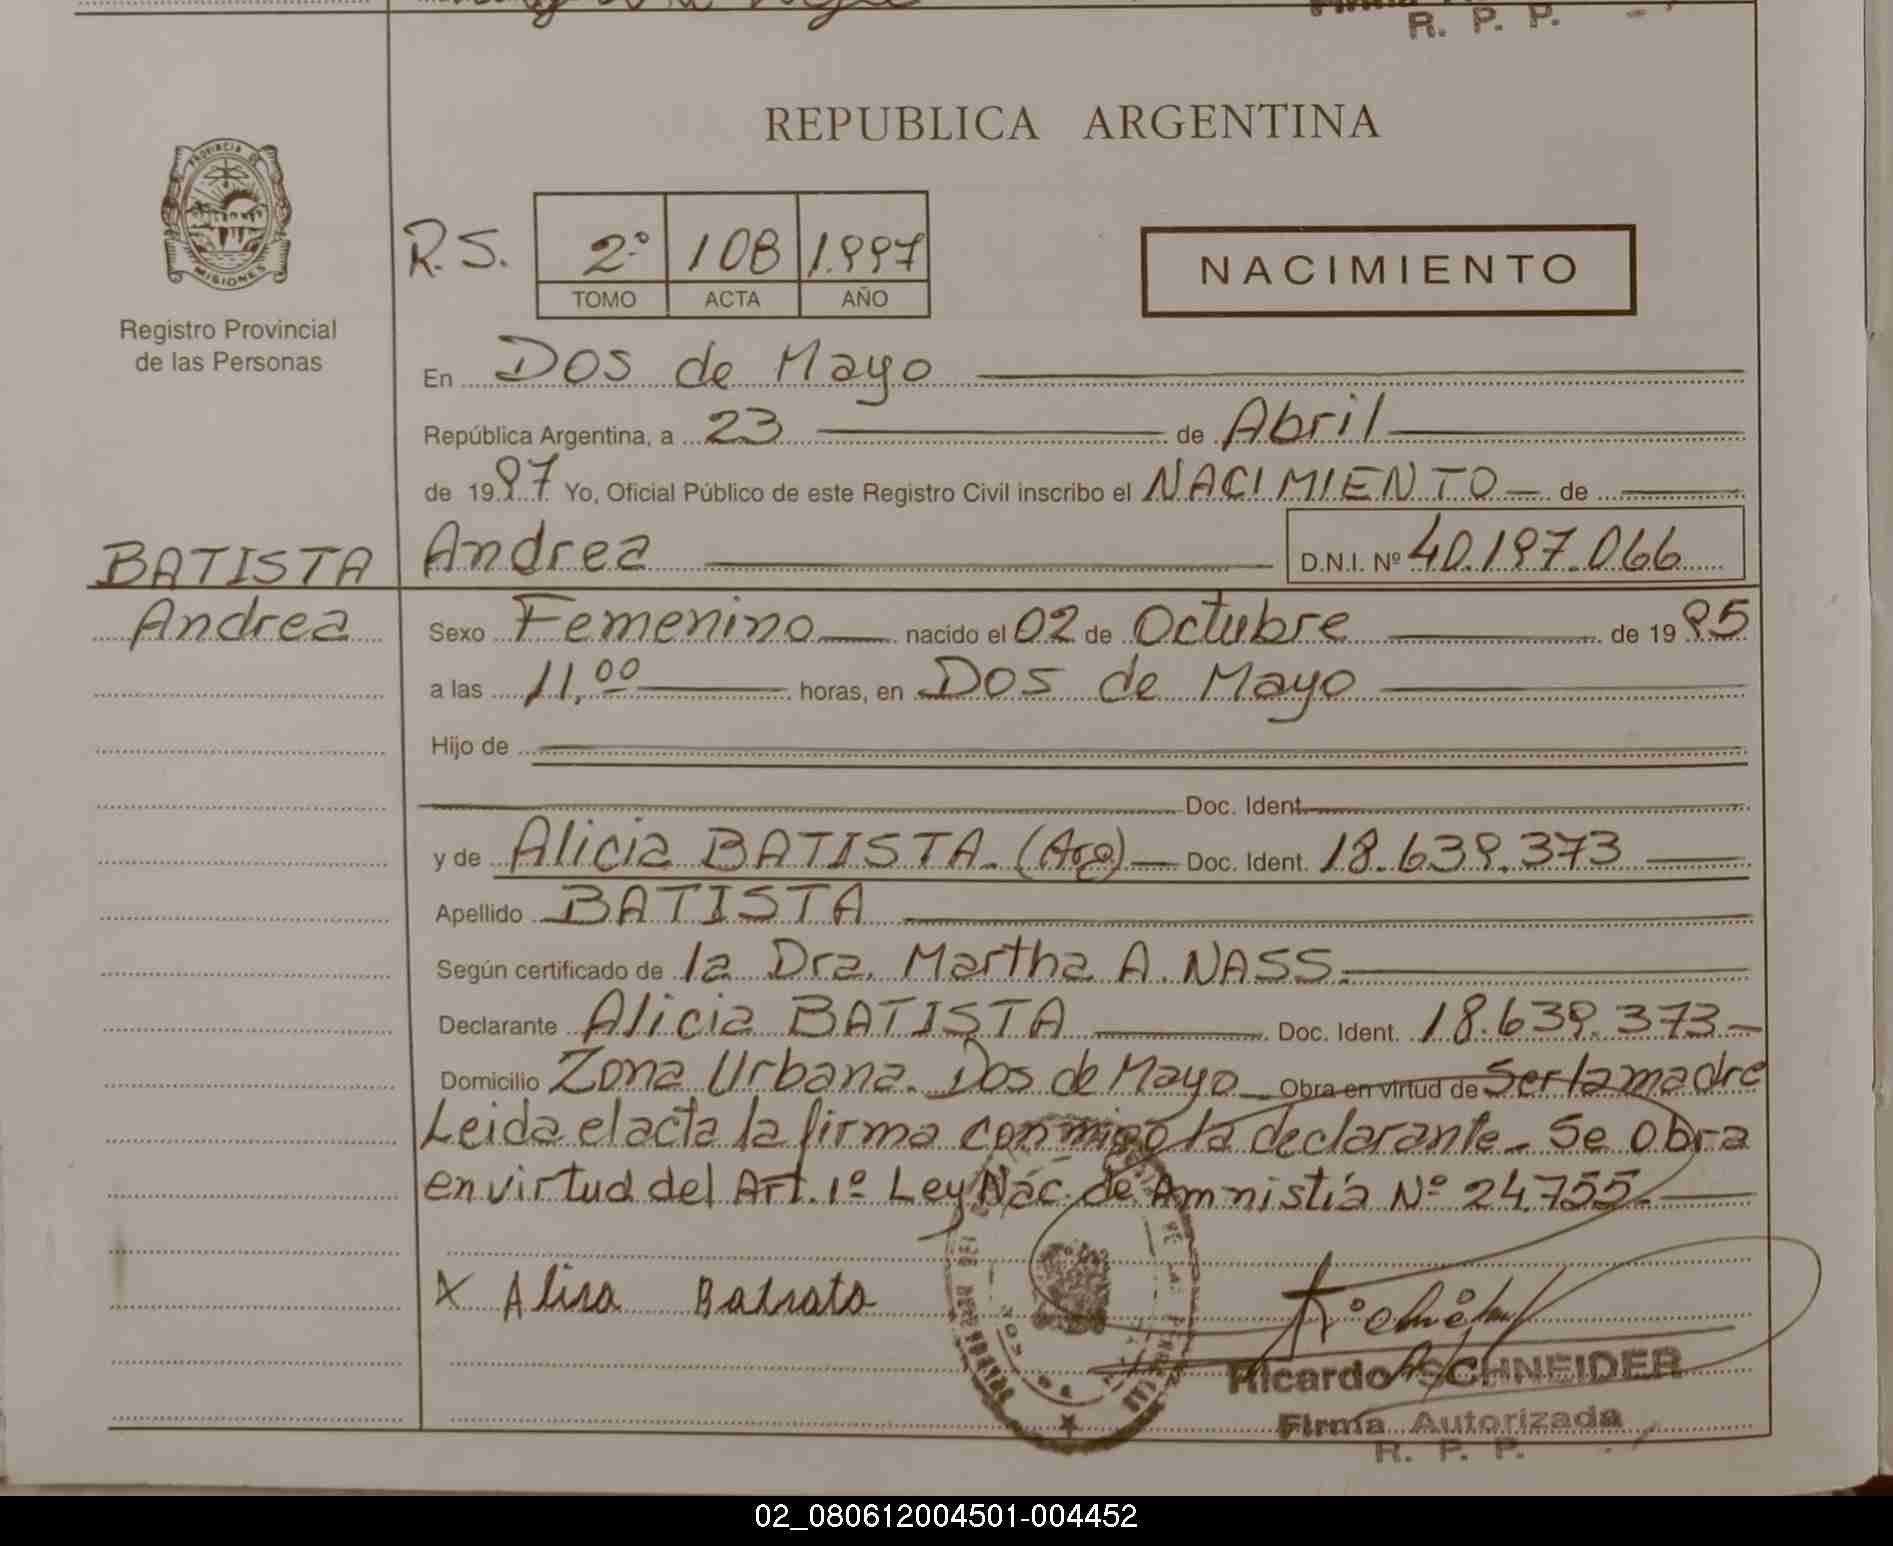 R. P. P.
REPUBLICA ARGENTINA
PROVINCIA DE
MISIONES
Registro Provincial
de las Personas
R.S. 2º 108 1.997
TOMO ACTA AÑO
NACIMIENTO
En Dos de Mayo
República Argentina, a 23 de Abril
de 1997 Yo, Oficial Público de este Registro Civil inscribo el NACIMIENTO de
BATISTA Andrea D.N.I. Nº 40.197.066
Andrea Sexo Femenino nacido el 02 de Octubre de 1995
a las 11,00 horas, en Dos de Mayo
Hijo de
Doc. Ident.
y de Alicia BATISTA. (Arg) Doc. Ident. 18.639.373
Apellido BATISTA
Según certificado de la Dra. Martha A. NASS.
Declarante Alicia BATISTA Doc. Ident. 18.639.373
Domicilio Zona Urbana. Dos de Mayo Obra en virtud de Ser la madre
Leida el acta la firma conmigo la declarante. Se obra
en virtud del Art. 1º Ley Nac. de Amnistía Nº 24.755.
X
Ricardo SCHNEIDER
Firma Autorizada
R. P. P.
02_080612004501-004452